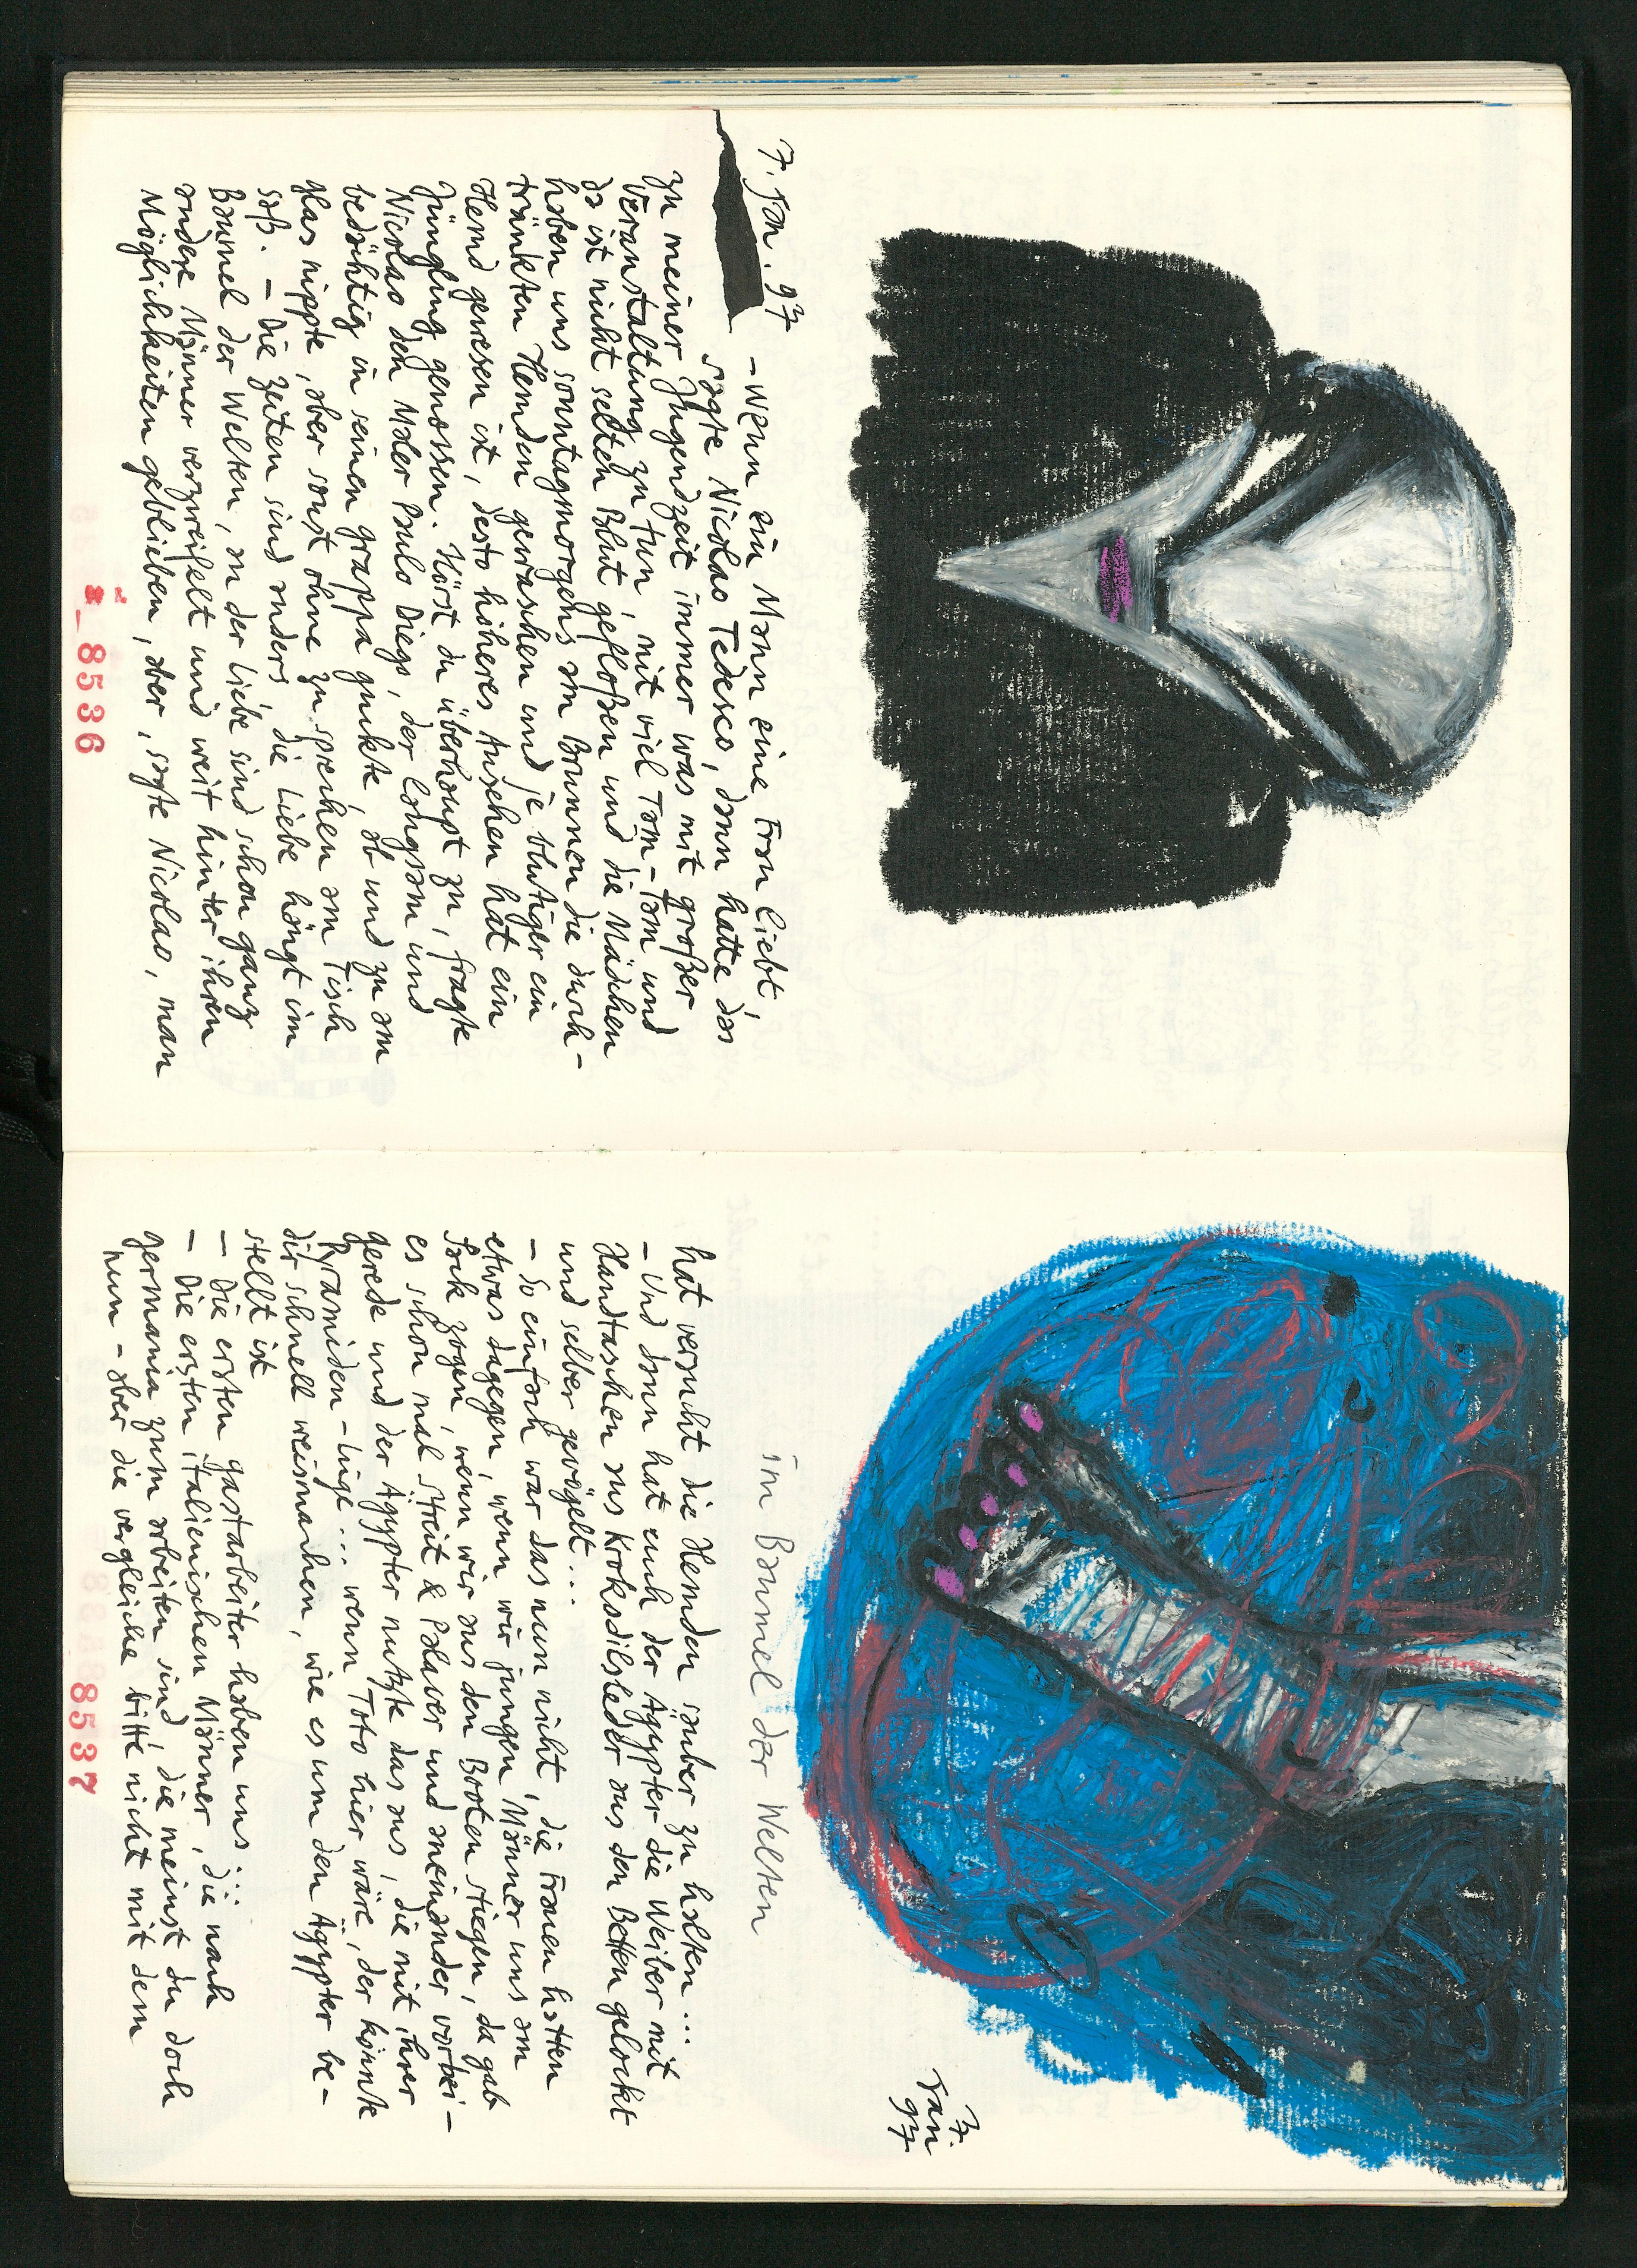 7. Jan. 97
– Wenn ein Mann eine Frau liebt,
sagte Nicolao Tedesco, dann hatte das
zu meiner Jugendzeit immer was mit großer
Veranstaltung zu tun, mit viel Tam-Tam und
da ist nicht selten Blut gefloßen und die Mädchen
haben uns sonntagmorgens am Brunnen die durch-
tränkten Hemden gewaschen und je blutiger ein
Hemd gewesen ist, desto höheres Ansehen hat ein
Jüngling genossen. Hörst du überhaupt zu, fragte
Nicolao den Maler Paulo Diego, der langsam und
bedächtig in seinen Grappa guckte, ab und zu am
Glas nippte, aber sonst ohne zu sprechen am Tisch
saß. – Die Zeiten sind anders, die Liebe hängt im
Baumel der Welten, an der Liebe sind schon ganz
andere Männer verzweifelt und weit hinter ihren
Möglichkeiten geblieben, aber, sagte Nicolao, man
8536
7.
Jan
97
im Baumel der Welten
hat versucht die Hemden sauber zu halten...
– Und dann hat euch der Ägypter die Weiber mit
Handtaschen aus Krokodilsleder aus den Betten gelockt
und selber gevögelt...
– So einfach war das nun nicht, die Frauen hatten
etwas dagegen, wenn wir jungen Männer uns am
Sack zogen, wenn wir aus den Booten stiegen, da gab
es schon mal Streit & Palaver und aneinander vorbei-
gerede und der Ägypter nutzte das aus, die mit ihrer
Pyramiden-Lüge... wenn Toto hier wäre, der könnte
dir schnell weismachen, wie es um den Ägypter be-
stellt ist
– Die ersten Gastarbeiter haben uns...
– Die ersten italienischen Männer, die nach
Germania zum arbeiten sind, die meinst du doch
nun – aber die vergleiche bitte nicht mit dem
8537